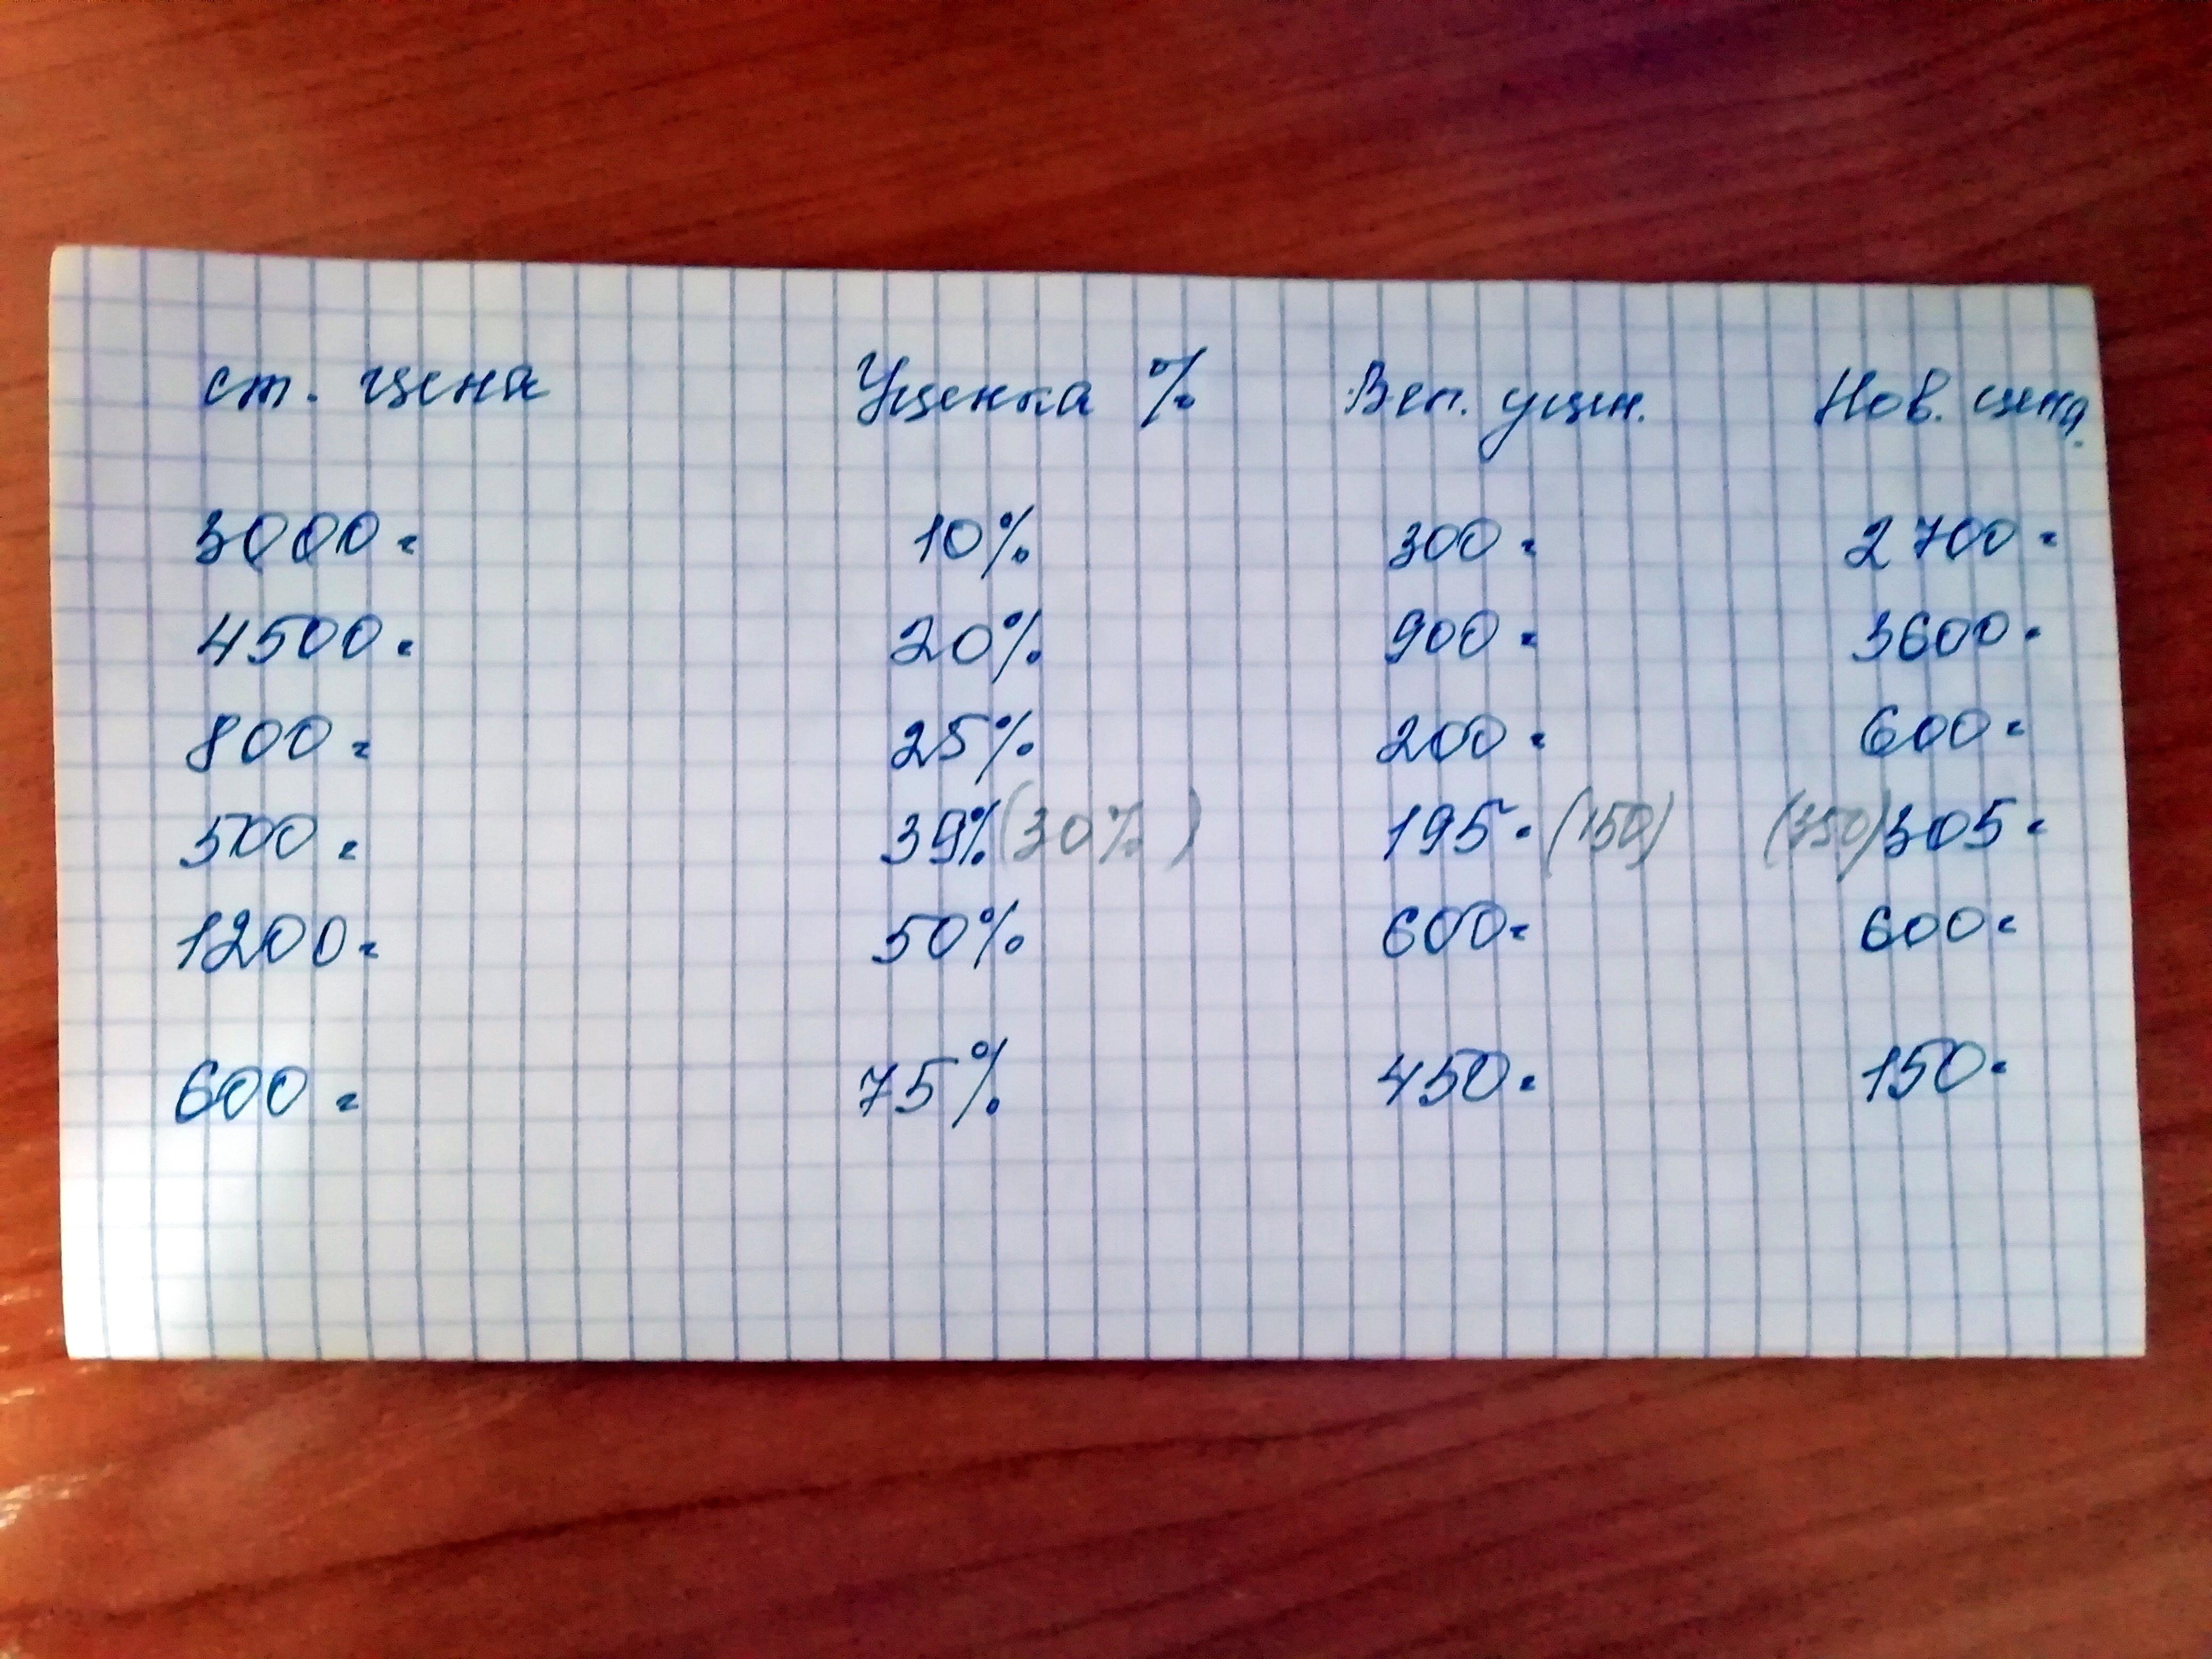 ст. цена Уценка % Вел. уцен. Нов. цена.
3000= 10% 300= 2700=
4500= 20% 900= 3600=
800= 25% 200= 600=
500= 39% (30%) 195= (150) (350) 305=
1200= 50% 600= 600=
600= 75% 450= 150=